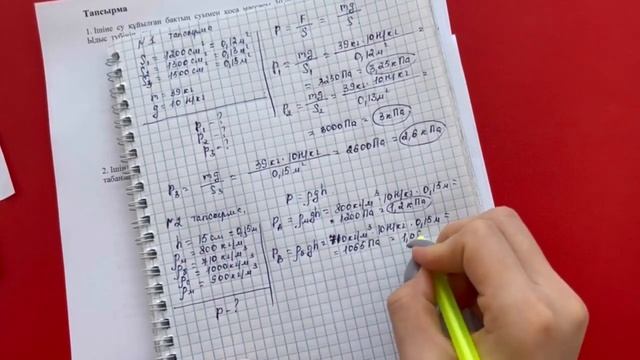 Тапсырма
1. Ішіне су құйылған бактың суммен қоса
Ыдыс түбінің
2. Ішін
табаны
№1 тапсырма,
S₁ = 1200 см² = 0,12 м²
S₂ = 1300 см² = 0,13 м²
S₃ = 1500 см² = 0,15 м²
m = 39 кг
g = 10 Н/кг
P₁ - ?
P₂ - ?
P₃ - ?
P = F/S = mg/S
P₁ = mg/S₁ = 39 кг · 10 Н/кг / 0,12 м² =
= 3250 Па = 3,25 кПа
P₂ = mg/S₂ = 39 кг · 10 Н/кг / 0,13 м² =
= 3000 Па = 3 кПа
P₃ = mg/S₃ = 39 кг · 10 Н/кг / 0,15 м² = 2600 Па = 2,6 кПа
№2 тапсырма,
h = 15 см = 0,15 м
= 800 кг/м³
= 710 кг/м³
= 1000 кг/м³
= 900 кг/м³
P - ?
P = ρgh
= 800 кг/м³ · 10 Н/кг · 0,15 м =
= 1200 Па = 1,2 кПа
= 710 кг/м³ · 10 Н/кг · 0,15 м =
= 1065 Па = 1,0